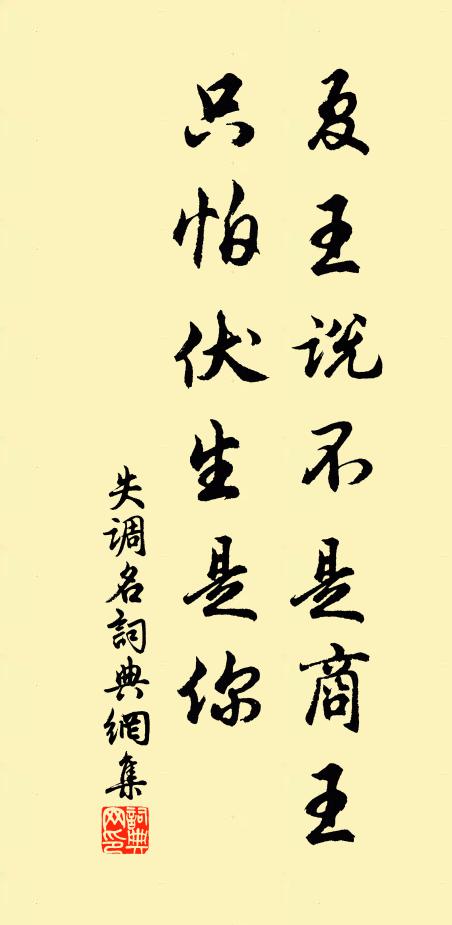 夏王说不是商王
只怕伏生是你
失调名詞典網集
詞典网印